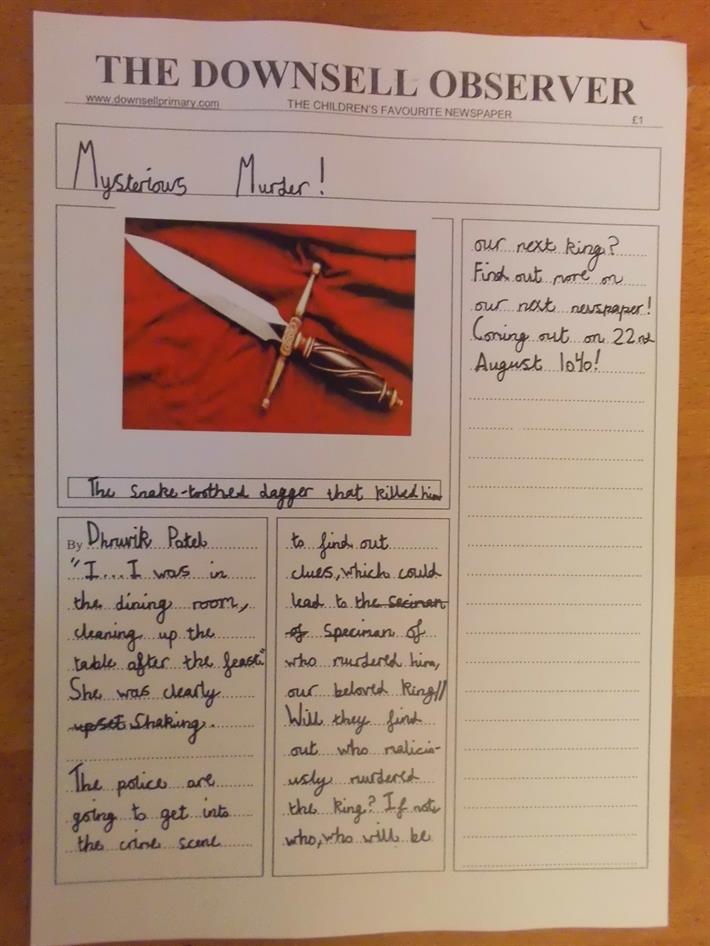 THE DOWNSELL OBSERVER
www.downsellprimary.com
THE CHILDREN'S FAVOURITE NEWSPAPER
£1
Mysterious Murder!
The snake-toothed dagger that killed him
By Dhruvik Patel
"I...I was in
the dining room,
cleaning up the
table after the feast."
She was clearly
upset shaking.
The police are
going to get into
the crime scene
to find out
clues, which could
lead to the seciman
of speciman of
who murdered him,
our beloved king//
Will they find
out who malicio-
usly murdered
the king? If not
who, who will be
our next king?
Find out more on
our next newspaper!
Coming out on 22nd
August 1040!